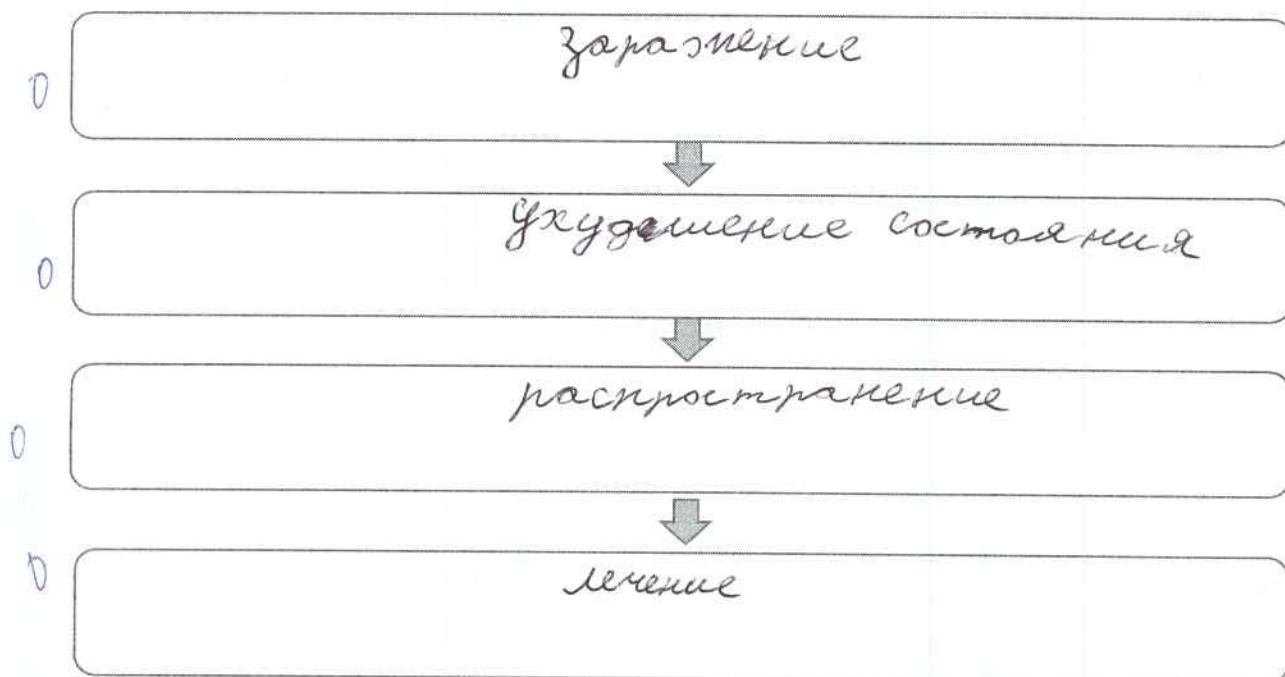 заражение
0
ухудшение состояния
0
распространение
0
лечение
0